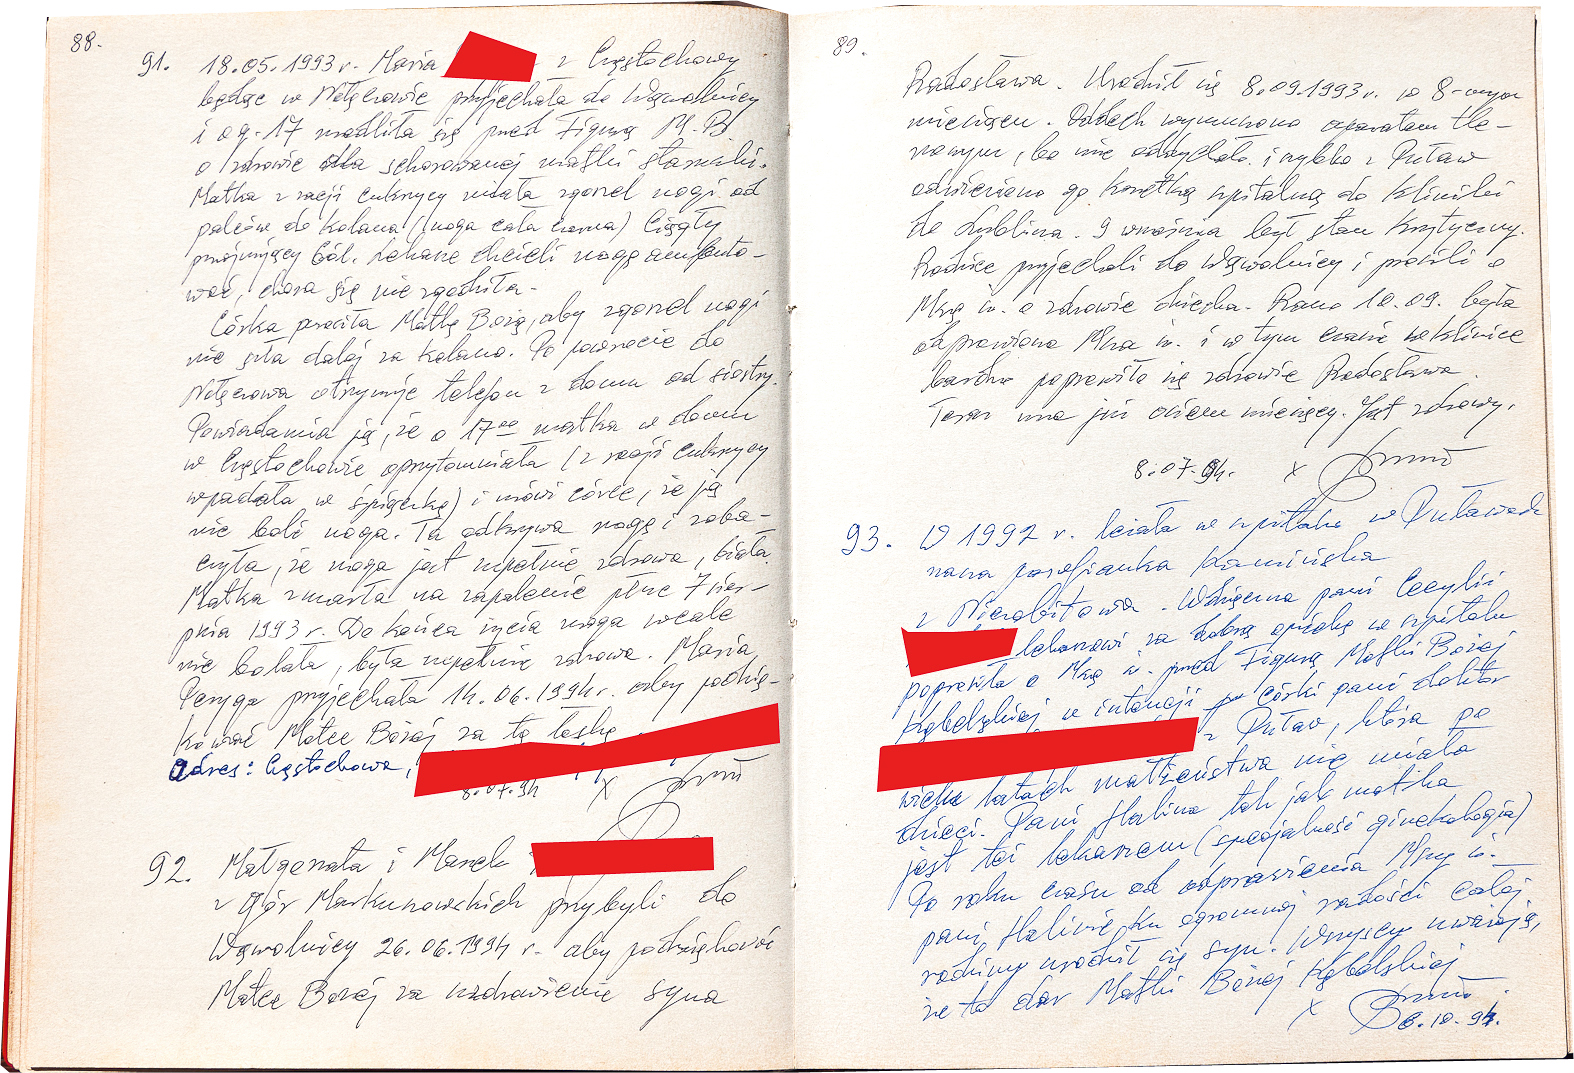 88.
91. 18.05.1993 r. Maria z Częstochowy
będąc w Nałęczowie przyjechała do Wąwolnicy
i o g. 17 modliła się przed Figurą M. B.
o zdrowie dla schorowanej matki staruszki.
Matka z racji cukrzycy miała zgorzel nogi od
palców do kolana (noga cała czarna) Ciągły
przejmujący ból. Lekarze chcieli nogę amputo-
wać, chora się nie zgodziła.
Córka prosiła Matkę Bożą, aby zgorzel nogi
nie szła dalej za kolano. Po powrocie do
Nałęczowa otrzymuje telefon z domu od siostry.
Powiadamia ją, że o 17 00 matka w domu
w Częstochowie oprzytomniała (z racji cukrzycy
wpadała w śpiączkę) i mówi córce, że ją
nie boli noga. Ta odkrywa nogę i zoba-
czyła, że noga jest zupełnie zdrowa, biała.
Matka zmarła na zapalenie płuc 7 sier-
pnia 1993 r. Do końca życia noga wcale
nie bolała, była zupełnie zdrowa. Maria
przyjechała 14.06.1994 r. aby podzię-
kować Matce Bożej za tę łaskę
Adres: Częstochowa,
8.07.94 x
92. Małgorzata i Marek
z Gór Markuszowskich przybyli do
Wąwolnicy 26.06.1994 r. aby podziękować
Matce Bożej za uzdrowienie syna
89.
Radosława. Urodził się 8.09.1993 r. w 8-mym
miesiącu. Oddech wymuszono aparatem tle-
nowym, bo nie oddychał i szybko z Puław
odwieziono go karetką szpitalną do kliniki
do Lublina. 9 września był stan krytyczny.
Rodzice przyjechali do Wąwolnicy i prosili o
Mszę św. o zdrowie dziecka. Rano 10.09. była
odprawiona Msza św. i w tym czasie w klinice
bardzo poprawiło się zdrowie Radosława.
Teraz ma już osiem miesięcy. Jest zdrowy.
8.07.94. x
93. W 1992 r. leżała w szpitalu w Puławach
nasza parafianka Kamińska
z Niezabitowa. Wdzięczna pani Cecylii
lekarzowi za dobrą opiekę w szpitalu
poprosiła o Mszę św. przed Figurą Matki Bożej
Kębelskiej w intencji córki pani doktor
z Puław, która po
wielu latach małżeństwa nie miała
dzieci. Pani Halina tak jak matka
jest też lekarzem (specjalność ginekologia)
Po roku czasu od odprawienia Mszy św.
pani Halinie ku ogromnej radości całej
rodziny urodził się syn. Wszyscy uważają,
że to dar Matki Bożej Kębelskiej
x
6.10.94.